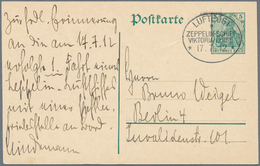 Postkarte
LUFTPOST
ZEPPELIN-SCHIFF
VIKTORIA
* 17.
Zur frdl. Erinnerung
an die am 17.7.12
erfolgte 1. Fahrt eines
Zeppelin-Luftschiffes
mit
an Bord.
Lindemann
Herrn
Bruno Weigel
Berlin 4
Invalidenstr. 101